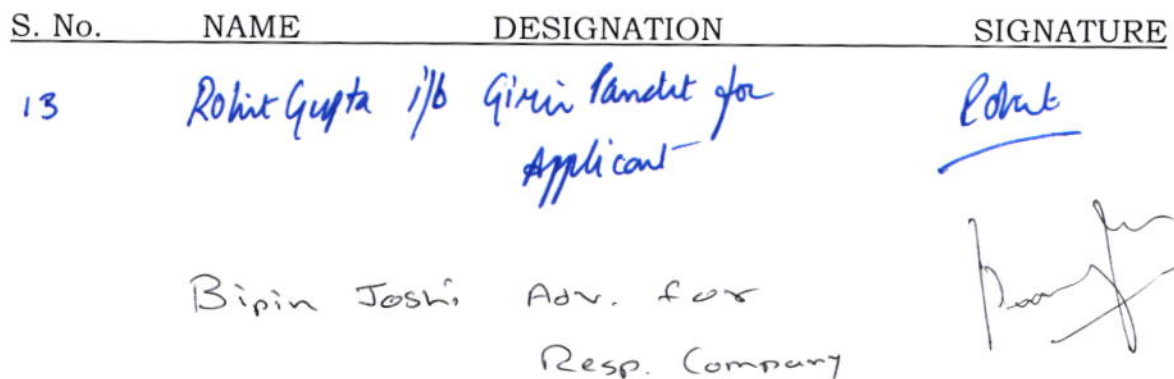 S. No. NAME DESIGNATION SIGNATURE
13 Rohit Gupta i/b Girin Pandit for Rohit
Applicant
Bipin Joshi Adv. for
Resp. Company